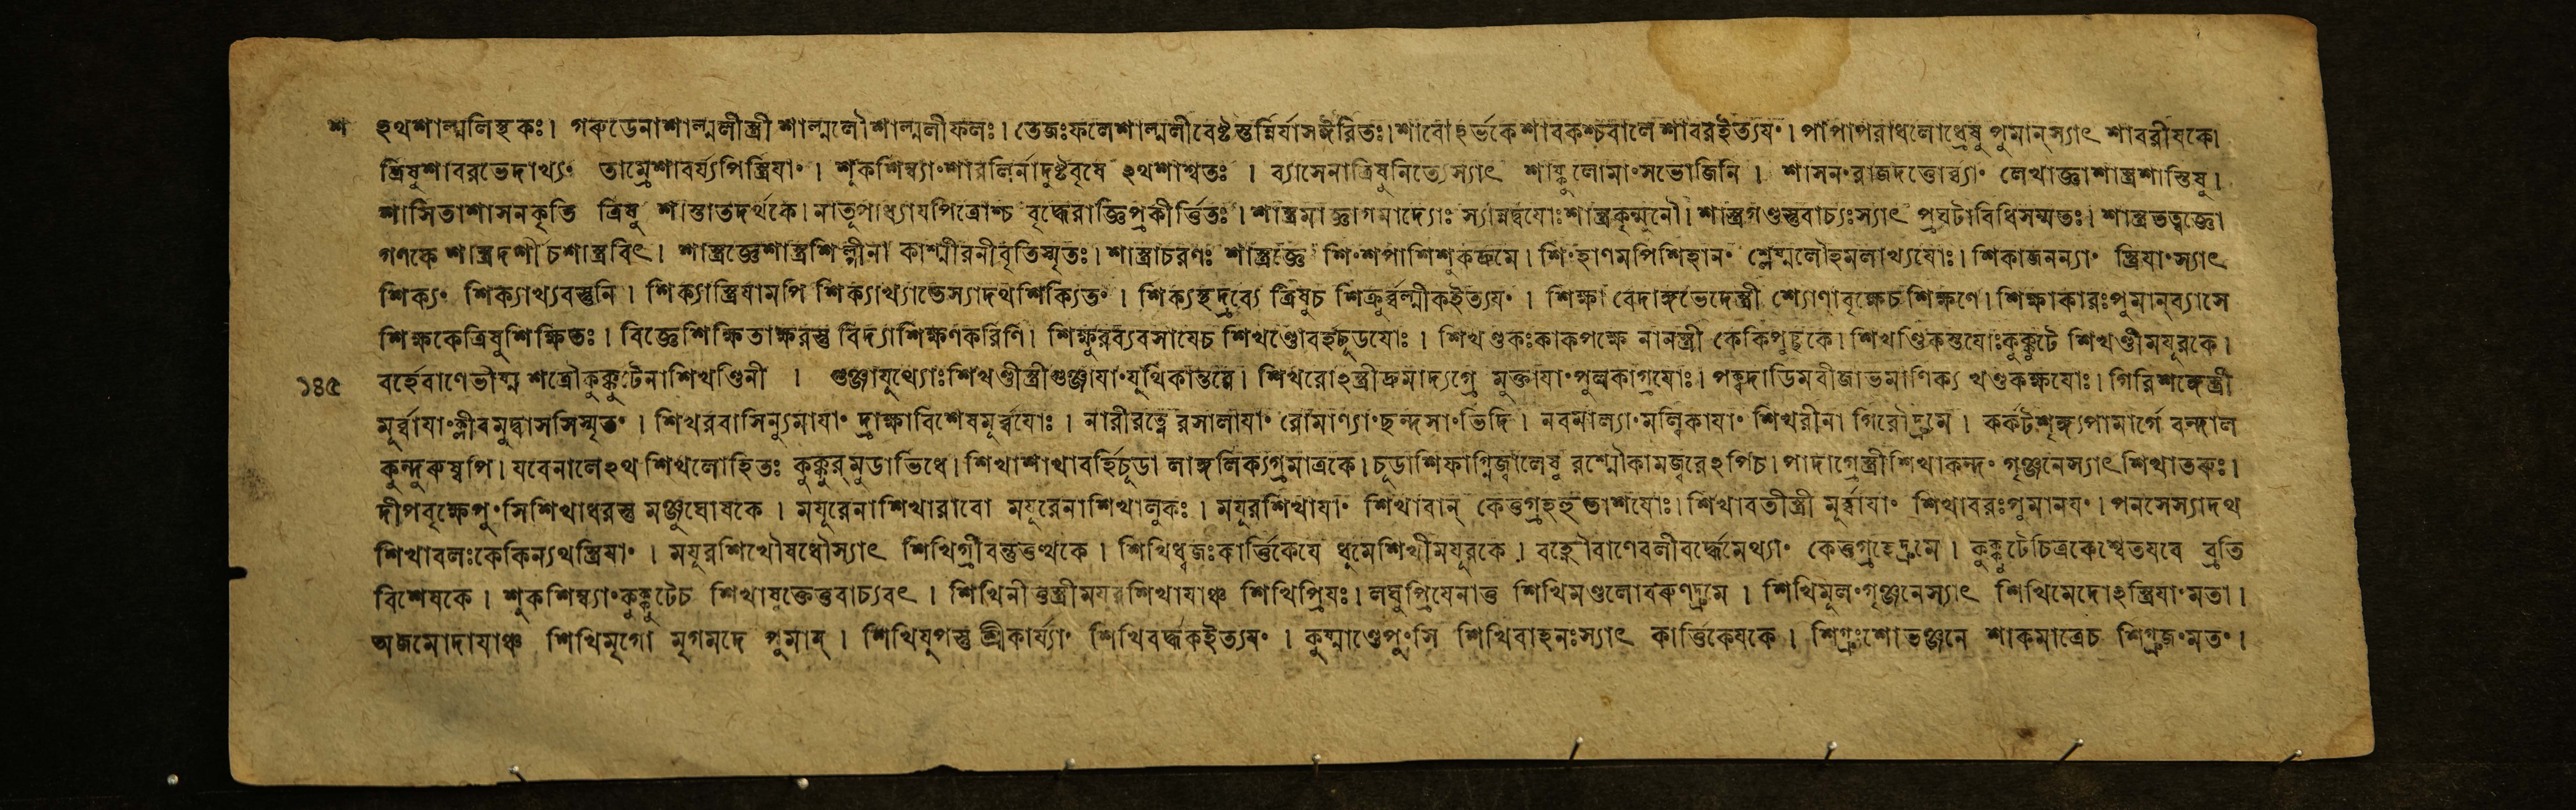 শ ঽথশাল্মলিস্থকঃ। গৰুডেনাশাল্মলীস্ত্রী শাল্মলৌশাল্মলীফলঃ। তেজঃফলেশাল্মলীবেষ্টস্তন্নির্যাসঈরিতঃ। শাবোঽর্ভকেশাবকশ্চবালেশাবরইত্যয॰। পাপাপরাধলোধ্রেষু পুমান্স্যাৎ শাবরীযকে।
ত্রিষুশাবরভেদাখ্য॰ তাম্রেশাবর্য্যপিস্ত্রিযা॰। শূকশিম্ব্যা॰শারলির্নাদুষ্টবৃষে ঽথশাশ্বতঃ। ব্যাসেনাত্রিষুনিত্যেস্যাৎ শাষ্কুলোমা॰সভোজিনি। শাসন॰রাজদত্তোর্ব্ব্যা॰ লেখাজ্ঞাশাস্ত্রশাস্তিষু।
শাসিতাশাসনকৃতি ত্রিষু শাস্তাতদর্থকে। নাতূপাধ্যাযপিত্রোশ্চ বৃদ্ধেরাজ্ঞিপ্রকীর্ত্তিতঃ। শাস্ত্রমাজ্ঞাগমাদ্যোঃ স্যান্নদ্বযোঃশাস্ত্রকৃন্মুনৌ। শাস্ত্রগণ্ডস্তুবাচ্যঃস্যাৎ প্রঘটাবিধিসম্মতঃ। শাস্ত্রতত্বজ্ঞো
গণকে শাস্ত্রদর্শীচশাস্ত্রবিৎ। শাস্ত্রজ্ঞেশাস্ত্রশিল্পীনা কাশ্মীরনীবৃতিস্মৃতঃ। শাস্ত্রাচরণঃ শাস্ত্রজ্ঞে শি॰শপাশিশুকদ্রুমে। শি॰হাণমপিশিহান॰ শ্লেষ্মলৌহমলাখ্যযোঃ। শিকাজনন্যা॰ স্ত্রিযা॰স্যাৎ
শিক্য॰ শিক্যাখ্যবস্তুনি। শিক্যাস্ত্রিযামপি শিক্যাখ্যান্তেস্যাদথশিক্যিত॰। শিক্যস্থদ্রব্যে ত্রিষুচ শিক্রুর্ব্বল্মীকইত্যয॰। শিক্ষা বেদাঙ্গভেদেস্ত্রী শ্যোণাবৃক্ষেচশিক্ষণে। শিক্ষাকারঃপুমান্ব্যাসে
শিক্ষকেত্রিষুশিক্ষিতঃ। বিজ্ঞেশিক্ষিতাক্ষরস্তু বিদ্যাশিক্ষণকরিণি। শিক্ষুরব্যবসাযেচ শিখণ্ডোবর্হচূডযোঃ। শিখণ্ডকঃকাকপক্ষে নানস্ত্রী কেকিপুচ্ছকে। শিখণ্ডিকস্তুযোঃকুক্কুটে শিখণ্ডীময়ূরকে।
১৪৫ বর্হেবাণেভীষ্ম শত্রৌকুক্কুটেনাশিখণ্ডিনী। গুঞ্জাযূথ্যোঃশিখণ্ডীস্ত্রীগুঞ্জাযা॰যূথিকান্তরে। শিখরোঽস্ত্রীদ্রুমাদ্যগ্রে মুক্তাযা॰পুলকাগ্রযোঃ। পক্বদাডিমবীজাভমাণিক্য খণ্ডকক্ষযোঃ। গিরিশৃঙ্গেস্ত্রী
মূর্ব্বাযা॰ক্লীবমুদ্বাসসিস্মৃত॰। শিখরবাসিন্যুমাযা॰ দ্রাক্ষাবিশেষমূর্ব্বযোঃ। নারীরত্নে রসালাযা॰ রোমাণ্যা॰ছন্দসা॰ভিদি। নবমাল্যা॰মল্লিকাযা॰ শিখরীনা গিরৌদ্রুমে। কর্কটশৃঙ্গ্যপামার্গে বন্দাল
কুন্দুৰুষ্বপি। যবেনালেঽথ শিখলোহিতঃ কুক্কুর্মুডাভিধে। শিখাশাখাবর্হিচূডা লাঙ্গলিক্যগ্রমাত্রকে। চূডাশিফাগ্নিজ্বালেষু রশ্মৌকামজ্বরেঽপিচ। পাদাগ্রেস্ত্রীশিখাকন্দ॰ গৃঞ্জনেস্যাৎশিখাতৰুঃ।
দীপবৃক্ষেপু॰সিশিখাধরস্তু মঞ্জুঘোষকে। ময়ূরেনাশিখারাবো ময়ূরেনাশিখালুকঃ। ময়ূরশিখাযা॰ শিখাবান্ কেতুগ্রহহুতাশযোঃ। শিখাবতীস্ত্রী মূর্ব্বাযা॰ শিখাবরঃপুমানয॰। পনসেস্যাদথ
শিখাবলঃকেকিন্যথস্ত্রিযা॰। ময়ূরশিখৌষধৌস্যাৎ শিখিগ্রীবন্তুতুত্থকে। শিখিধ্বজঃকার্ত্তিকেযে ধূমেশিখীময়ূরকে। বহ্নৌবাণেবলীবর্দ্দেমেথ্যা॰ কেতুগ্রহেদ্রুমে। কুক্কুটেচিত্রকেশ্বেতযবে ব্রতি
বিশেষকে। শূকশিম্ব্যা॰কুক্কুটেচ শিখাযুক্তেতুবাচ্যবৎ। শিখিনীতুস্ত্রীময়ূরশিখাযাঞ্চ শিখিপ্রিযঃ। লঘুপ্রিযেনাতু শিখিমণ্ডলোবৰুণদ্রুমে। শিখিমূল॰গৃঞ্জনেস্যাৎ শিখিমেদোঽস্ত্রিযা॰মতা।
অজমোদাযাঞ্চ শিখিমৃগো মৃগমদে পুমান্। শিখিযূপস্তু শ্রীকার্য্যা॰ শিখিবর্দ্ধকইত্যয॰। কুষ্মাণ্ডেপু॰সি শিখিবাহনঃস্যাৎ কার্ত্তিকেযকে। শিগ্রুঃশোভঞ্জনে শাকমাত্রেচ শিগ্রুজ॰মত॰।